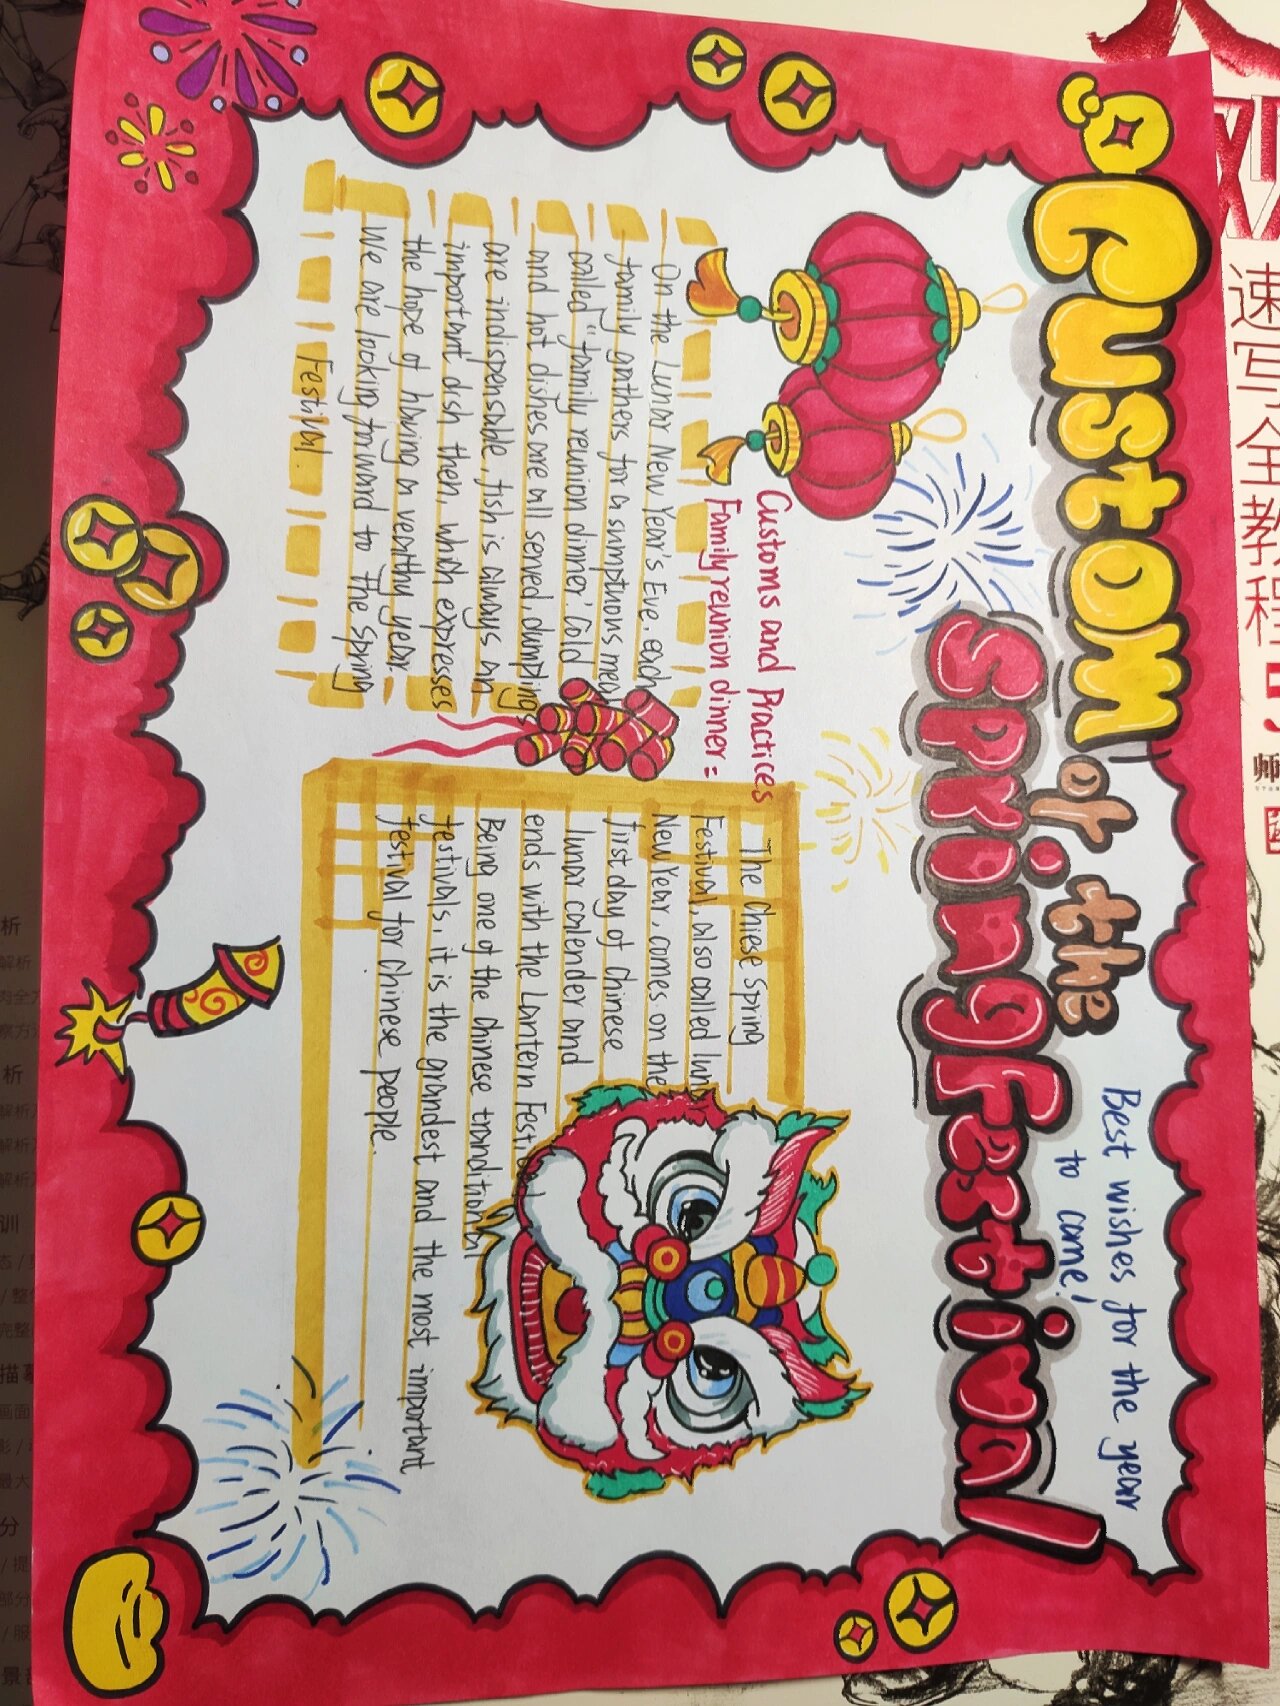 Custom of the
Spring Festival
Best wishes for the year
to come!
Customs and Practices
Family reunion dinner:
On the Lunar New Year's Eve, each
family gathers for a sumptuous meal
called "family reunion dinner'. Cold
and hot dishes are all served, dumplings
are indispensable, fish is always an
important dish then, which expresses
the hope of having a wealthy year.
We are looking forward to The Spring
Festival.
The Chiese Spring
Festival, also called lunar
New Year, comes on the
first day of Chinese
lunar calender and
ends with the Lantern Festival
Being one of the Chinese tranditional
festivals, it is the grandest and the most important
festival for Chinese people.
速写全教程